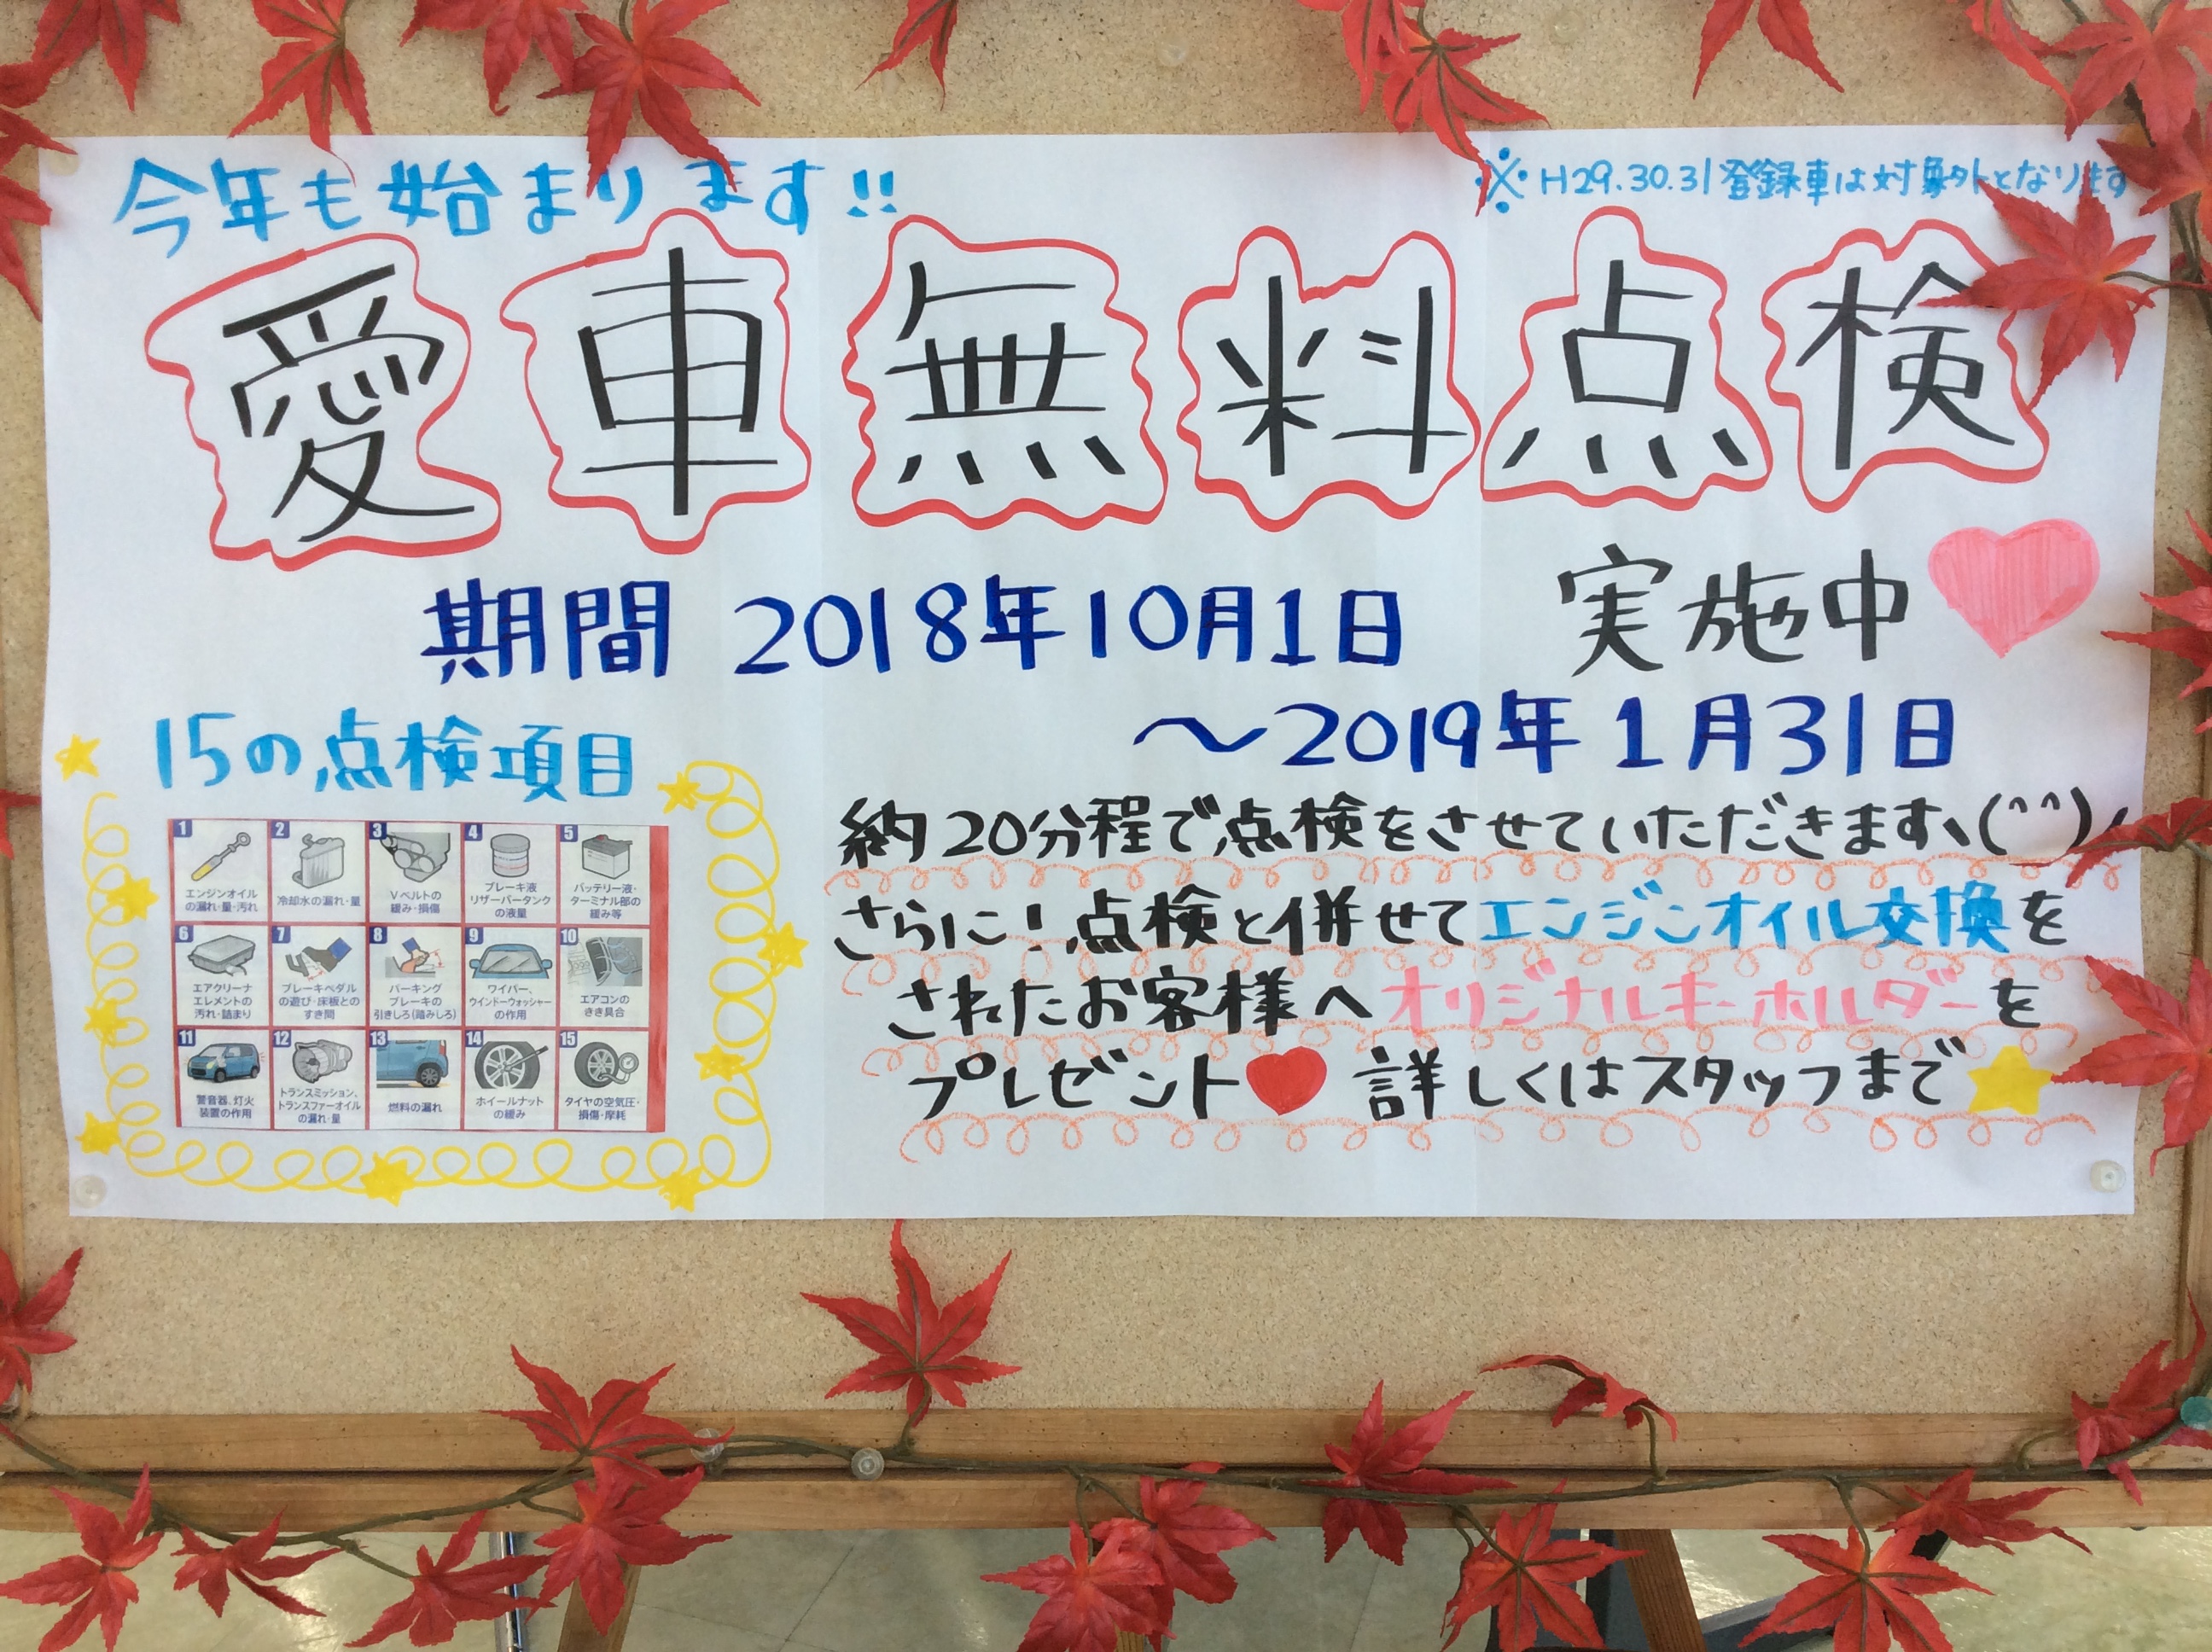 今年も始まります!!
※H29.30.31登録車は対象外となります
愛車無料点検
実施中
期間 2018年10月1日
～2019年1月31日
15の点検項目
1
エンジンオイル
の漏れ・量・汚れ
2
冷却水の漏れ・量
3
Vベルトの
緩み・損傷
4
ブレーキ液
リザーバータンク
の液量
5
バッテリー液・
ターミナル部の
緩み等
6
エアクリーナ
エレメントの
汚れ・詰まり
7
ブレーキペダル
の遊び・床板との
すき間
8
パーキング
ブレーキの
引きしろ(踏みしろ)
9
ワイパー、
ウインドーウォッシャー
の作用
10
エアコンの
きき具合
11
警音器、灯火
装置の作用
12
トランスミッション、
トランスファーオイル
の漏れ・量
13
燃料の漏れ
14
ホイールナット
の緩み
15
タイヤの空気圧・
損傷・摩耗
約20分程で点検をさせていただきますヽ(^^)ノ
さらに!点検と併せてエンジンオイル交換を
されたお客様へオリジナルキーホルダーを
プレゼント♥ 詳しくはスタッフまで★